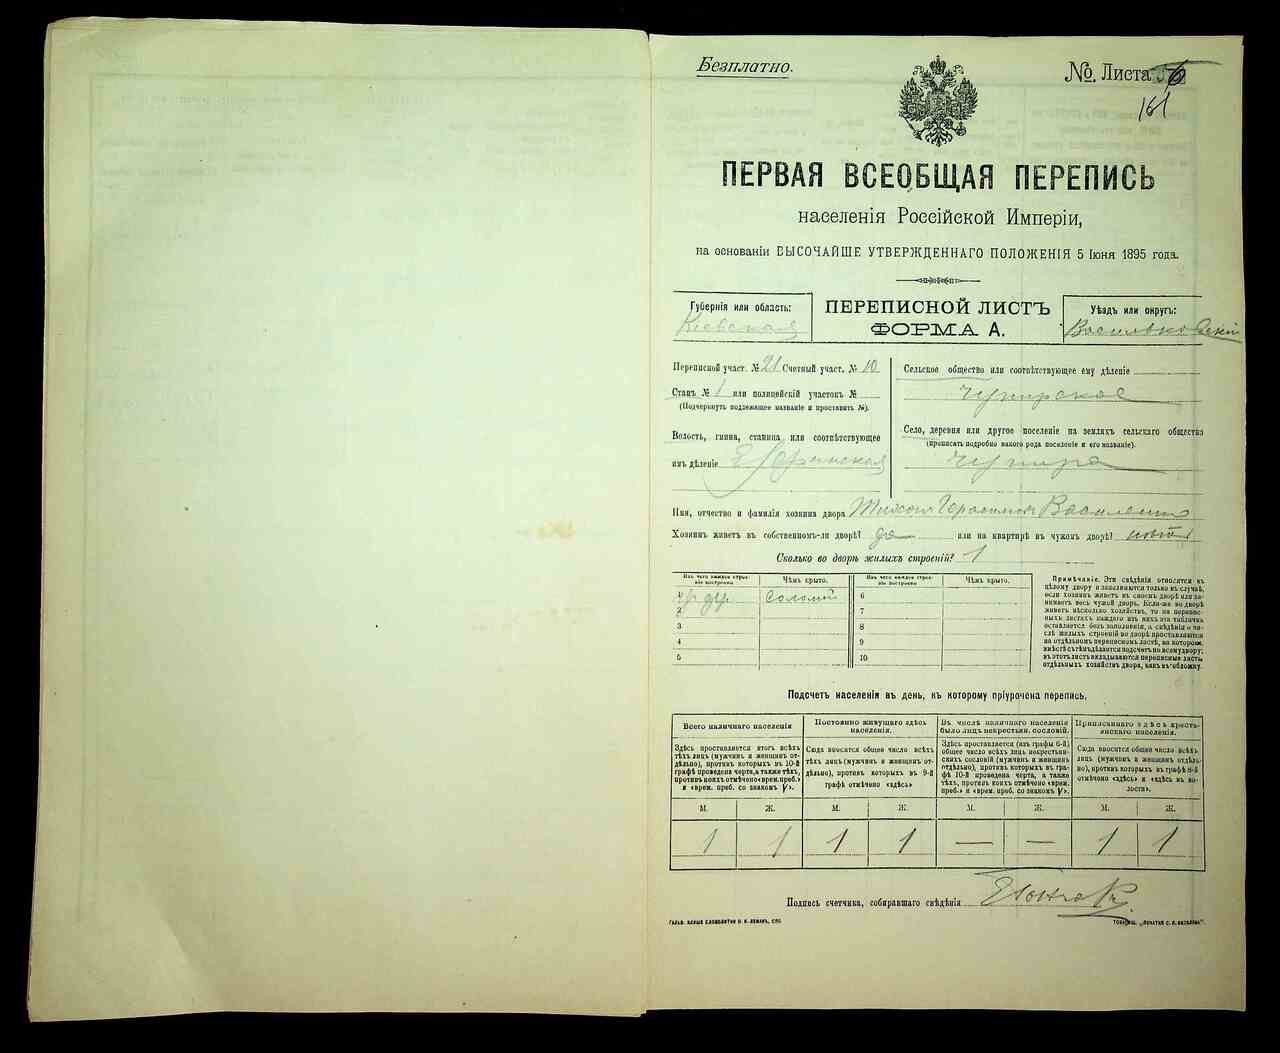 Безплатно.
№ Листа 
161
ПЕРВАЯ ВСЕОБЩАЯ ПЕРЕПИСЬ
населенія Россійской Имперіи,
на основаніи ВЫСОЧАЙШЕ УТВЕРЖДЕННАГО ПОЛОЖЕНІЯ 5 Іюня 1895 года.
Губернія или область:
Кіевская
ПЕРЕПИСНОЙ ЛИСТЪ
ФОРМА А.
Уѣздъ или округъ:
Васильковскій
Переписной участ. № 21 Счетный участ. № 10
Станъ № 1 или полицейскій участокъ №
(Подчеркнуть подлежащее названіе и проставить №).
Волость, гмина, станица или соотвѣтствующее
имъ дѣленіе
Сельское общество или соотвѣтствующее ему дѣленіе
Чупирское
Село, деревня или другое поселеніе на земляхъ сельскаго общества
(прописать подробно какого рода поселеніе и его названіе).
Чупира
Имя, отчество и фамилія хозяина двора Тихон Герасимов Василенко
Хозяинъ живетъ въ собственномъ-ли дворѣ? да или на квартирѣ въ чужомъ дворѣ?
Сколько во дворѣ жилыхъ строеній? 1
Изъ чего каждое строеніе построено
Чѣмъ крыто.
Изъ чего каждое строеніе построено
Чѣмъ крыто.
1 соломой 6
2 7
3 8
4 9
5 10
Примѣчаніе. Эти свѣдѣнія относятся къ
цѣлому двору и заполняются только въ случаѣ,
если хозяинъ живетъ въ своемъ дворѣ или занимаетъ
весь чужой дворъ. Если-же во дворѣ
живетъ нѣсколько хозяйствъ, то на переписныхъ
листахъ каждаго изъ нихъ эта табличка
оставляется безъ заполненія, а свѣдѣнія о числѣ
жилыхъ строеній во дворѣ проставляются
на отдѣльномъ переписномъ листѣ, на которомъ
вмѣстѣ съ тѣмъ дѣлается подсчетъ по всему двору;
въ этотъ листъ вкладываются переписные листы
отдѣльныхъ хозяйствъ двора, какъ въ обложку.
Подсчетъ населенія въ день, къ которому пріурочена перепись.
Всего наличнаго населенія
Постоянно живущаго здѣсь населенія.
Въ числѣ наличнаго населенія было лицъ некрестьян. сословій.
Приписаннаго здѣсь крестьянскаго населенія.
Здѣсь проставляется итогъ всѣхъ
тѣхъ лицъ (мужчинъ и женщинъ отдѣльно),
противъ которыхъ въ 10-й
графѣ проведена черта, а также тѣхъ,
противъ коихъ отмѣчено «врем. преб.»
и «врем. преб. со знакомъ V».
Сюда вносится общее число всѣхъ
тѣхъ лицъ (мужчинъ и женщинъ отдѣльно),
противъ которыхъ въ 9-й
графѣ отмѣчено «здѣсь»
Здѣсь проставляется (изъ графы 6-й)
общее число всѣхъ лицъ некрестьянскихъ
сословій (мужчинъ и женщинъ
отдѣльно), противъ которыхъ въ графѣ
10-й проведена черта, а также
тѣхъ, противъ коихъ отмѣчено «врем.
преб.» и «врем. преб. со знакомъ V».
Сюда вносится общее число всѣхъ
лицъ (мужчинъ и женщинъ отдѣльно),
противъ которыхъ въ графѣ 8-й
отмѣчено «здѣсь» и «здѣсь въ волости».
М. Ж. М. Ж. М. Ж. М. Ж.
1 1 1 1 — — 1 1
Подпись счетчика, собиравшаго свѣдѣнія